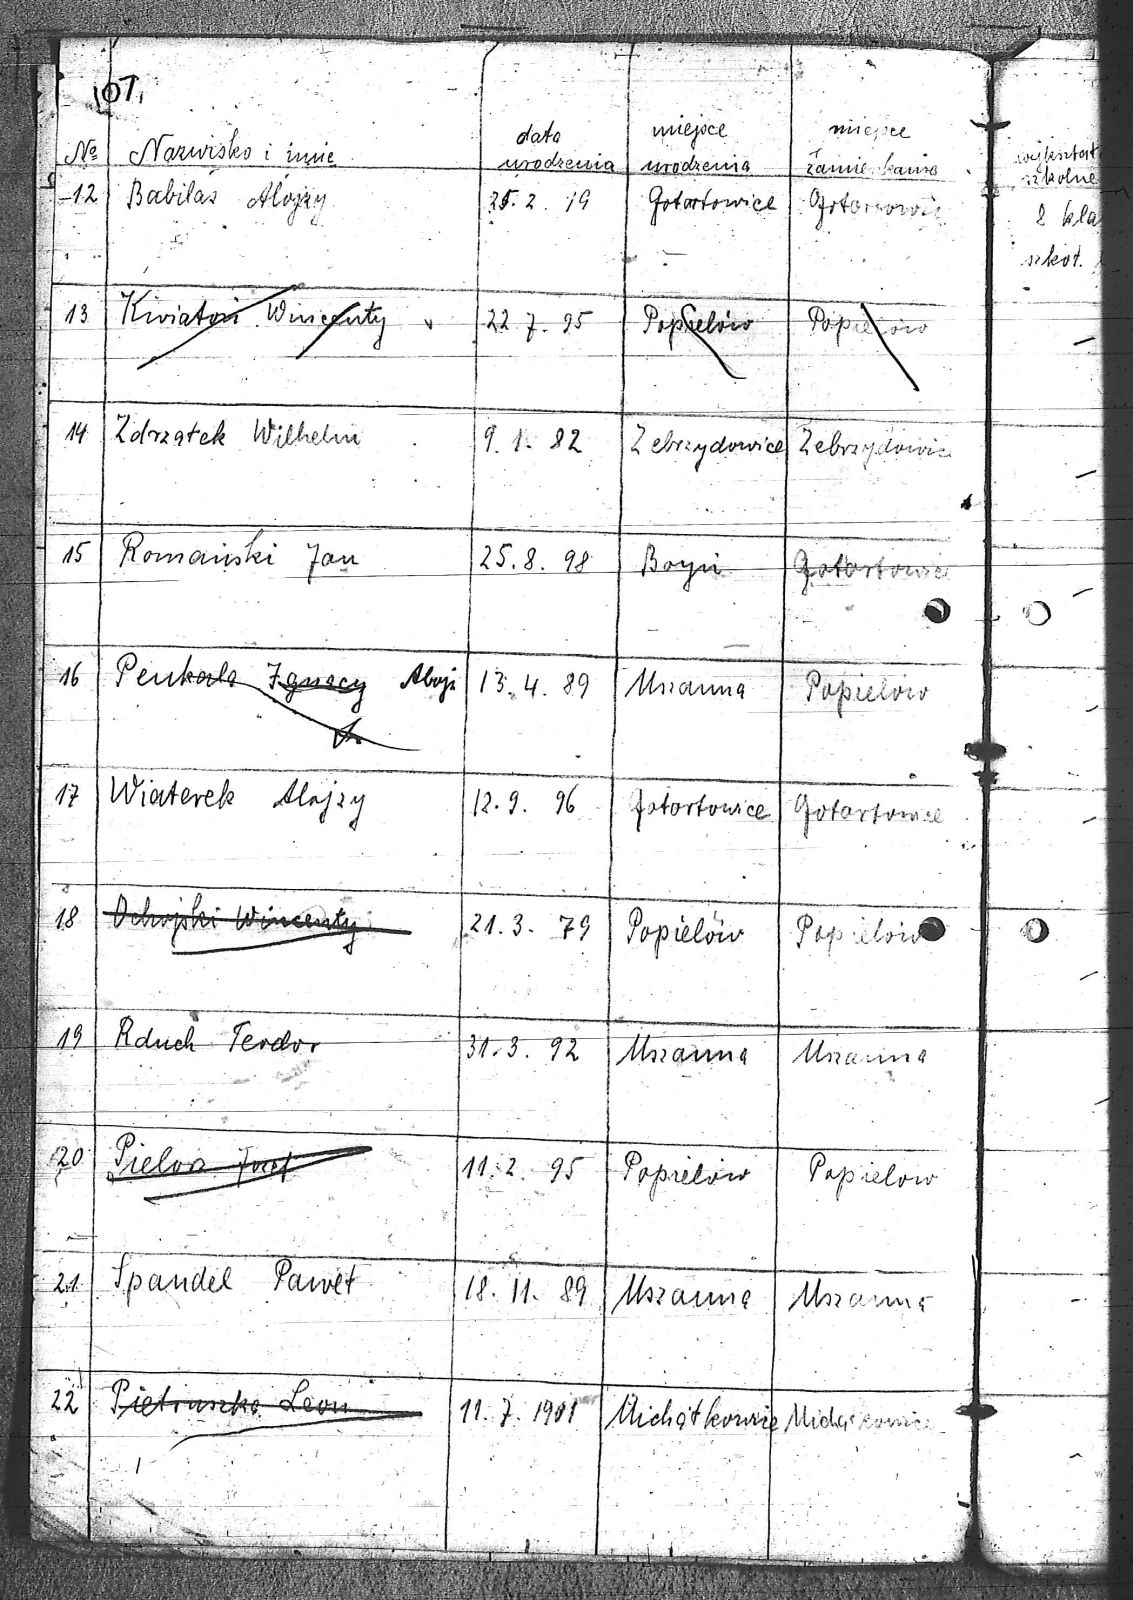 107,
№ Nazwisko i imię data urodzenia miejsce urodzenia miejsce zamieszkania wykształ szkolne
12 Babilas Alojzy 2. 19 Gotartowice Gotartowic 2 kla
szkoł.
13 Kwiatoń Wincenty 22 7. 95 Popielów Popielów
14 Zdrzałek Wilhelm 9. 1. 82 Zebrzydowice Zebrzydowic
15 Romański Jan 25. 8. 98 Boyń Gotartowice
16 Penkala Ignacy Alojz 13. 4. 89 Mszanna Popielów
17 Wiaterek Alojzy 12. 9. 96 Gotartowice Gotartowice
18 Ochojski Wincenty 21. 3. 79 Popielów Popielów
19 Rduch Teodor 31. 3. 92 Mszanna Mszanna
20 Pielorz Józef 11. 2. 95 Popielów Popielow
21 Spandel Paweł 18. 11. 89 Mszanna Mszanna
22 Pietruszka Leon 11. 7. 1901 Michałkowice Michałkowice